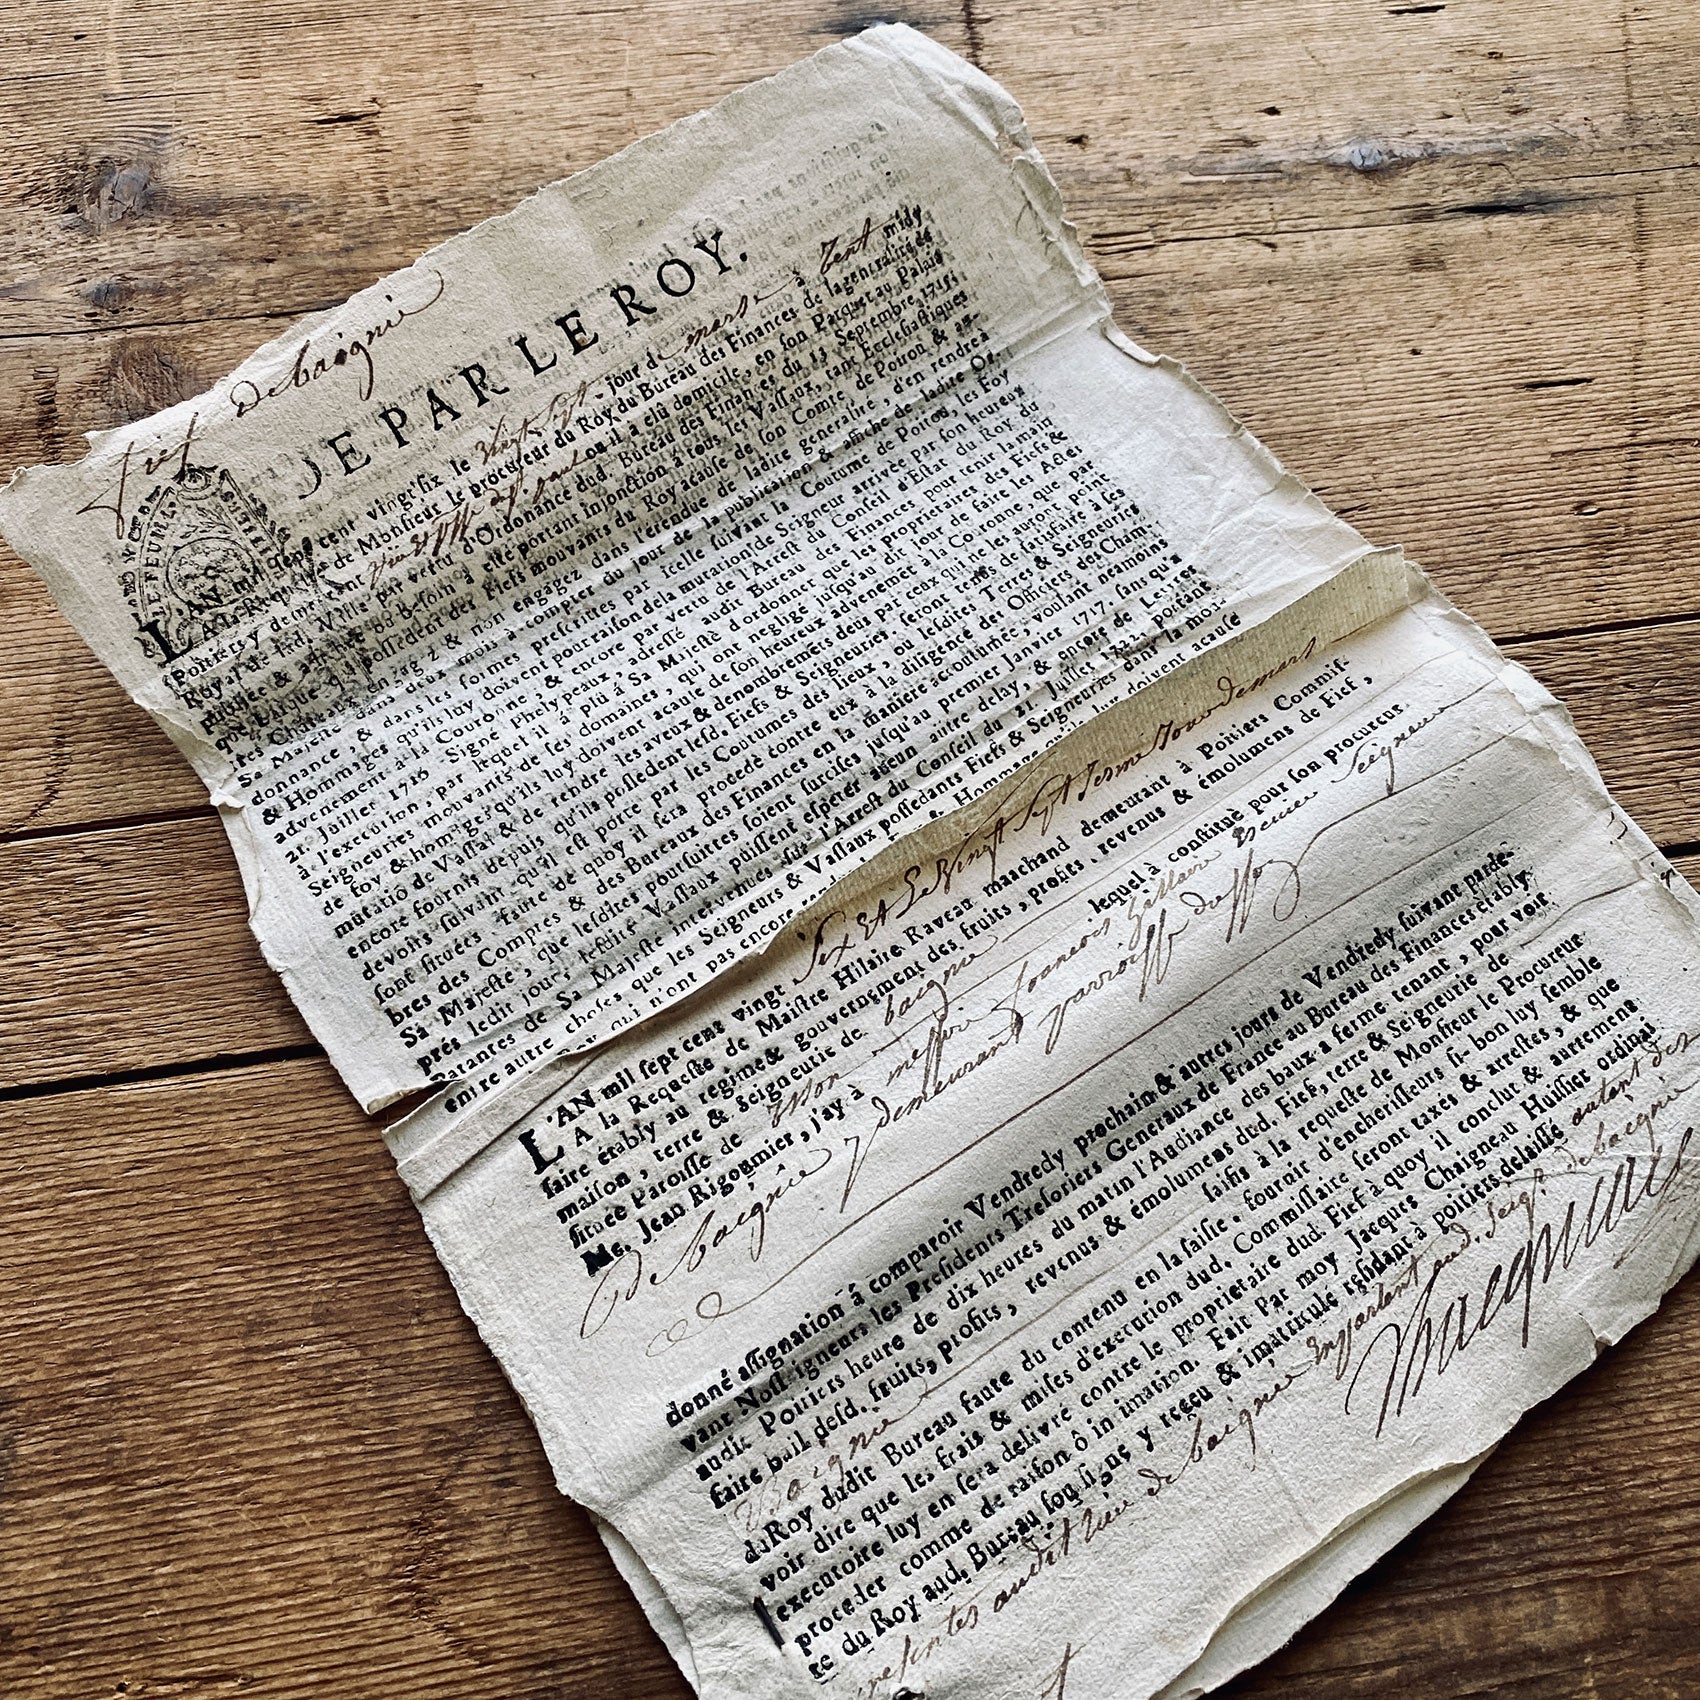 fief de baignie
DE PAR LE ROY.
L'AN mil sept cent vingt six le vingt sept jour de mars à avant midy
A la Requeste de Monsieur le procureur du Roy du Bureau des Finances de la generalité de
Poitiers y demeurant ou il a elû domicile, en son Parquet au Palais
Royal de lad. Ville par vertu d'Ordonance dud. Bureau des Finances du 13 Septembre 1715.
publiée & affichée où besoin a esté portant Injonction à tous les Vassaux, tant Ecclesiastiques
que Laïques qui possedent des Fiefs mouvants du Roy acause de son Comté de Poitou, & au-
tres Chateaux engagez & non engagez dans l'étenduë de ladite generalité, d'en rendre à
Sa Majesté dans deux mois à compter du jour de la publication & affiche de ladite Or-
donnance, & dans les formes prescrites par icelle suivant la Coutume de Poitou, les Foy
& Hommages qu'ils luy doivent pour raison de la mutation de Seigneur arrivée par son heureux
advenement à la Couronne, & encore par vertu de l'Arrest du Conseil d'Estat du Roy, du
21. Juillet 1716 Signé Phelypeaux, adressé audit Bureau des Finances pour tenir la main
à l'execution, par lequel il à plû à Sa Majesté d'ordonner que les Proprietaires des Fiefs &
Seigneuries mouvants de ses domaines, qui ont negligé jusqu'au dit jour de faire les Actes
de foy & hommages qu'ils luy doivent acause de son heureux advenemẽt à la Couronne, que par
mutatiõ de Vassal & de rendre les aveux & denombremẽts deus par ceux qui ne les auront point
encore fournis depuis qu'ils possedent lesd. Fiefs & Seigneuries, seront tenus de satisfaire à ses
devoirs suivant qu'il est porté par les Coutumes des lieux, ou lesdites Terres & Seigneuries
sont situées, faute de quoy il sera procedé contre eux à la diligence des Officiers des Cham-
bres des Comptes & des Bureaux des Finances en la maniere accoutumée, voulant neãmoins
Sa Majesté, que lesdites poursuites soient surcises jusqu'au premier Janvier 1717. sans qu'a
prés ledit jour, lesdits Vassaux puissent esperer aucun autre delay, & encore de Lettres
Patantes de Sa Majesté intervenuës sur l'Arrest du Conseil du 21. Juillet 1722. Portante
entre autre choses que les Seigneurs & Vassaux possedants Fiefs & Seigneuries dans la mou-
Roy qui n'ont pas encore rendu Hommages qu'ils luy doivent acause
L'AN mil sept cent vingt six et le vingt sept iesme jour de mars
A la Requeste de Maistre Hilaire Raveau marchand demeurant à Poitiers Commis-
saire étably au regime & gouvernement des fruits, profits, revenus & émolumens de Fief,
maison, terre & Seigneurie de baignie
située Paroisse de lequel à constitué pour son procureur
Me. Jean Rigoumier, j'ay à messire francois hillaire Seigneur
de baignie y demeurant parroisse
donné assignation à comparoir Vendredy prochain & autres jours de Vendredy suivant parde-
vant Nosseigneurs les Presidents Tresoriers Generaux de France au Bureau des Finances étably
audit Poitiers heure de dix heures du matin l'Audiance des baux a ferme tenant, pour voir
faire bail desd. fruits, profits, revenus & émolumens dud. Fief, terre & Seigneurie de
Baignie saisis à la requeste de Monsieur le Procureur
du Roy dudit Bureau faute du contenu en la saisie, fournir d'encherisseurs si-bon luy semble
voir dire que les frais & mises d'execution dud. Commissaire seront taxés & arrestés, & que
executoire luy en sera delivré contre le proprietaire dud. Fief à quoy il conclut & autrement
proceder comme de raison ô in imation. Fait Par moy Jacques Chaigneau Huissier ordinai-
re du Roy aud. Bureau sousigné y reçeu & imatriculé résidant à poitiers delaissé autant des
presentes audit lieu de baignie en parlant aud. seigr. de baignie